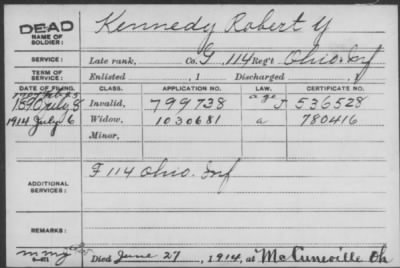 DEAD
NAME OF SOLDIER: Kennedy Robert Y
SERVICE: Late rank, Co. G, 114 Reg't Ohio. Inf
TERM OF SERVICE: Enlisted , 1 Discharged , 1
DATE OF FILING. CLASS. APPLICATION NO. LAW. CERTIFICATE NO.
1890 July 8 Invalid, 799738 age J 536528
1914 July 6 Widow, 1030681 a 780416
Minor,
ADDITIONAL SERVICES: F 114 Ohio. Inf
REMARKS:
Died June 27, 1914, at McCuneville Oh